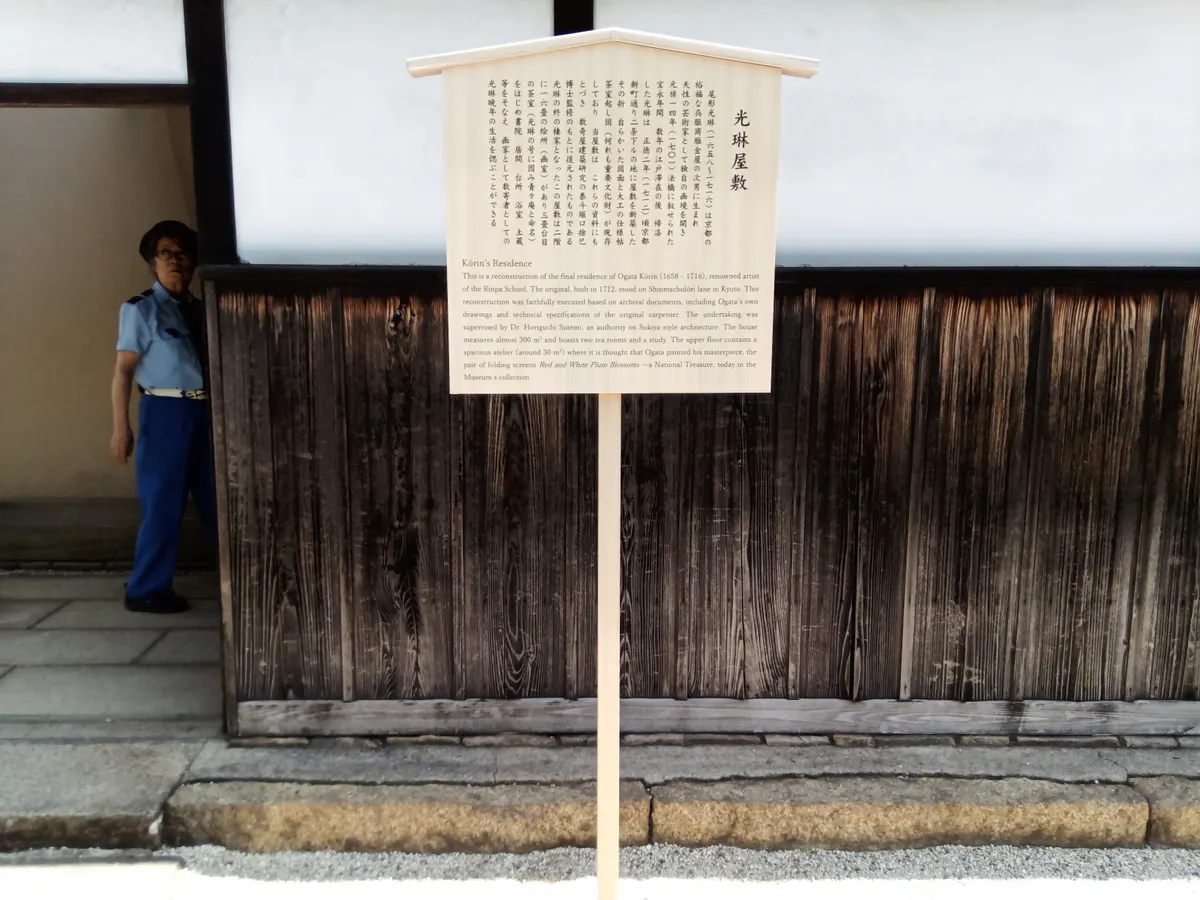 光琳屋敷
尾形光琳(一六五八〜一七一六)は京都の
裕福な呉服商雁金屋の次男に生まれ
天性の芸術家として独自の画境を開き
元禄一四年(一七〇一)法橋に叙せられた
宝永年間 数年の江戸滞在の後 帰洛
した光琳は 正徳二年(一七一二)頃京都
新町通り二条下ルの地に屋敷を新築した
その折 自らかいた図面と大工の仕様帖
茶室起し図(何れも重要文化財)が現存
しており 当屋敷は これらの資料にも
とづき 数奇屋建築研究の泰斗堀口捨巳
博士監修のもとに復元されたものである
光琳の終の棲家となったこの屋敷は二階
に一六畳の絵所(画室)があり三畳台目
の茶室(光琳の号に因み青々庵と命名)
をはじめ書院 居間 台所 浴室 土蔵
等をそなえ 画家として数寄者としての
光琳晩年の生活を偲ぶことができる
Kōrin's Residence
This is a reconstruction of the final residence of Ogata Kōrin (1658 - 1716), renowned artist
of the Rinpa School. The original, built in 1712, stood on Shinmachidōri lane in Kyoto. This
reconstruction was faithfully executed based on archival documents, including Ogata's own
drawings and technical specifications of the original carpenter. The undertaking was
supervised by Dr. Horiguchi Sutemi, an authority on Sukiya style architecture. The house
measures almost 300 m² and boasts two tea rooms and a study. The upper floor contains a
spacious atelier (around 30 m²) where it is thought that Ogata painted his masterpiece, the
pair of folding screens Red and White Plum Blossoms → National Treasure, today in the
Museum's collection